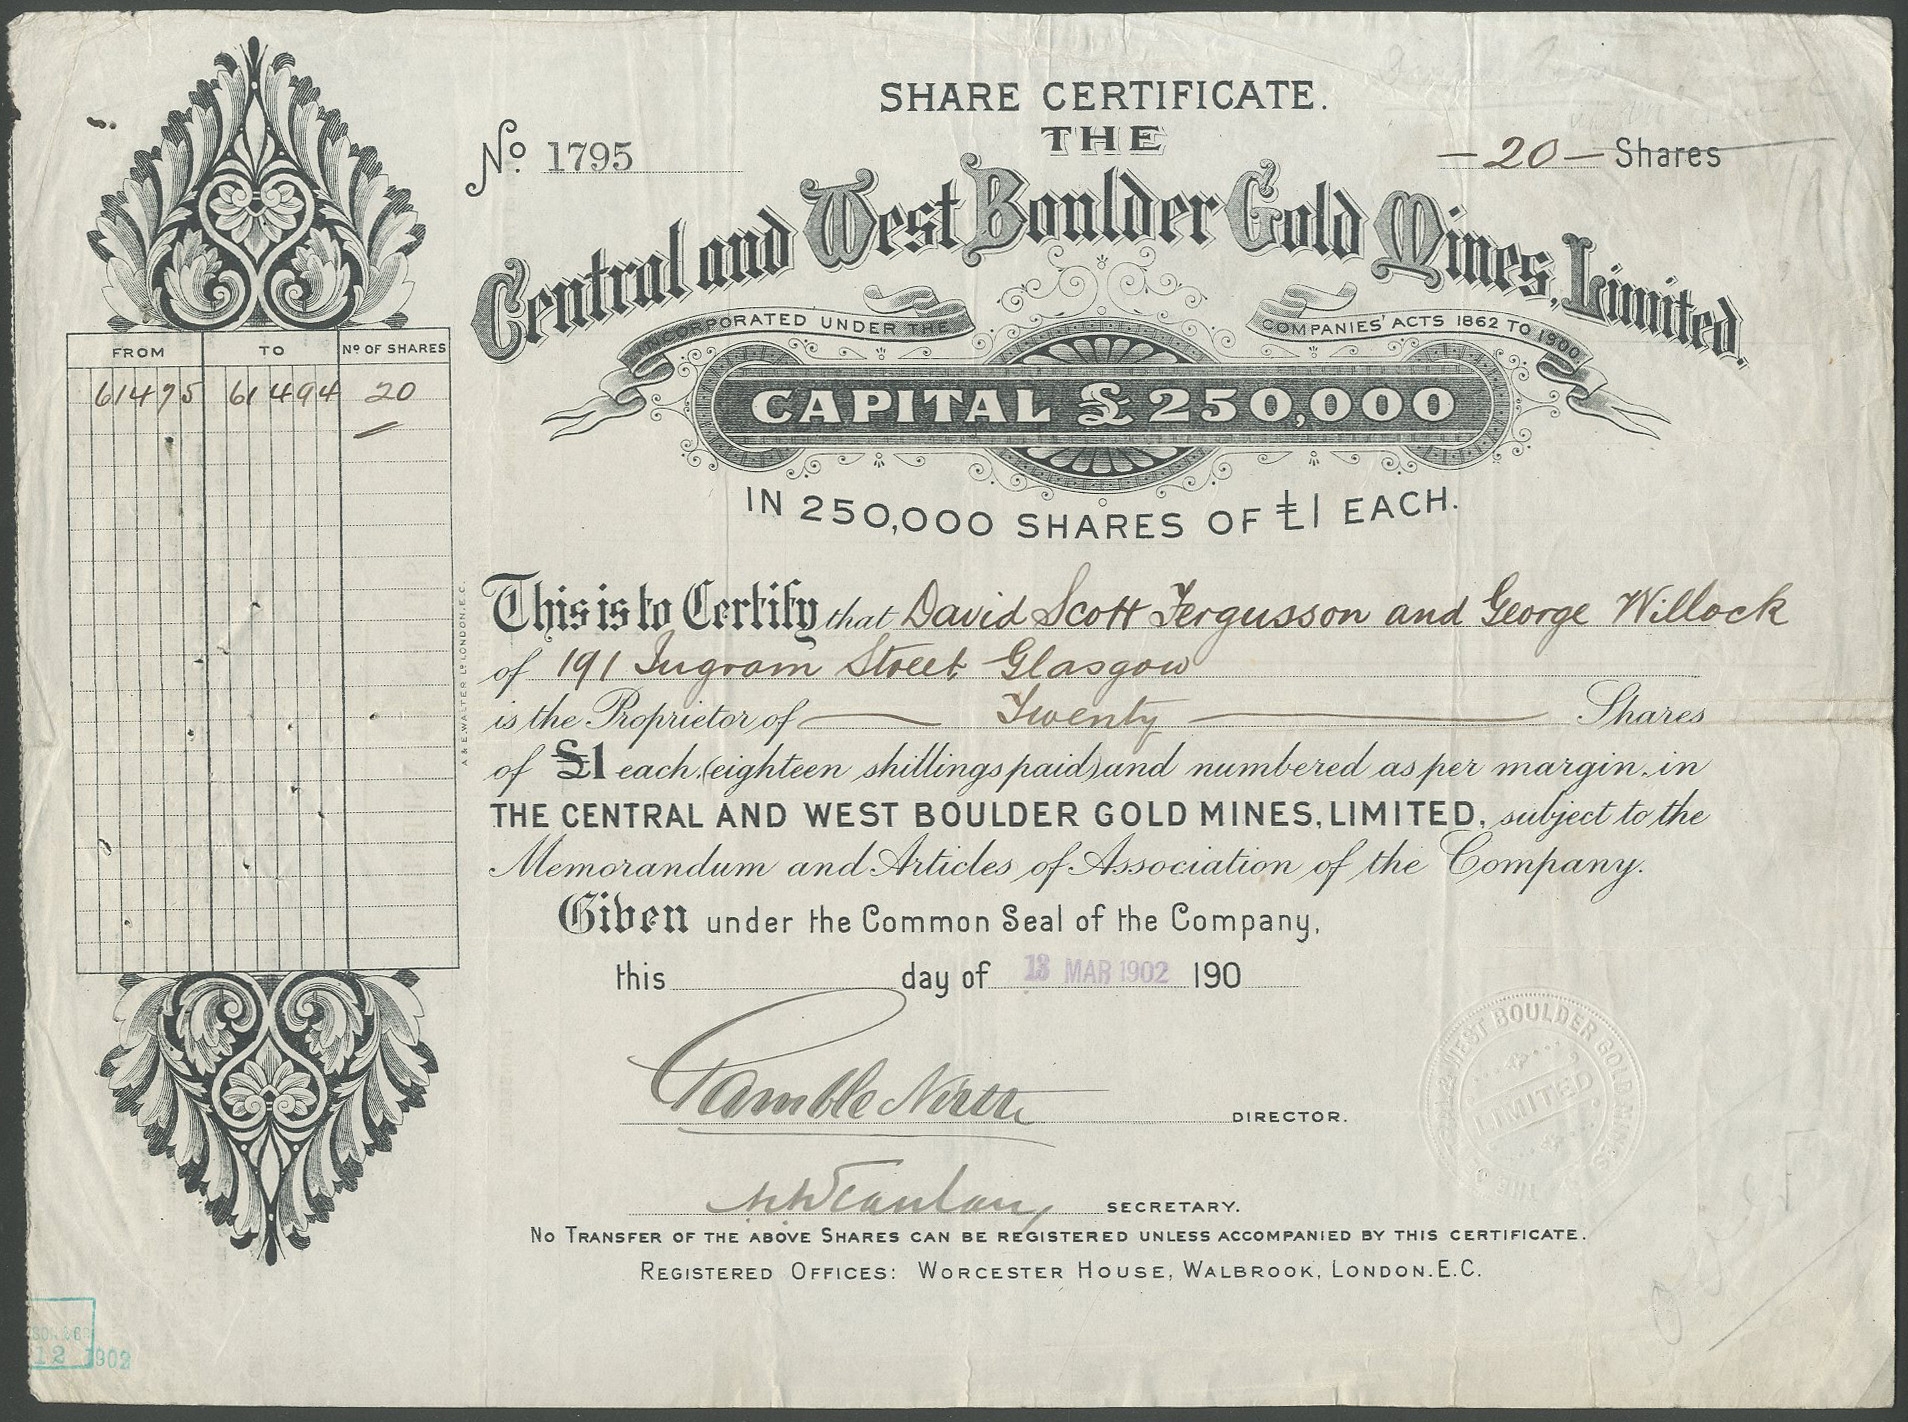 SHARE CERTIFICATE.
No. 1795
— 20 — Shares
THE
Central and West Boulder Gold Mines, Limited.
INCORPORATED UNDER THE COMPANIES' ACTS 1862 TO 1900.
CAPITAL £250,000
IN 250,000 SHARES OF £1 EACH.
FROM TO No OF SHARES
61475 61494 20
A & E. WALTER LD LONDON. E.C.
This is to Certify that David Scott Fergusson and George Willock
of 191 Ingram Street Glasgow
is the Proprietor of — Twenty — Shares
of £1 each, (eighteen shillings paid) and numbered as per margin, in
THE CENTRAL AND WEST BOULDER GOLD MINES, LIMITED, subject to the
Memorandum and Articles of Association of the Company.
Given under the Common Seal of the Company,
this day of 13 MAR 1902 190
DIRECTOR.
SECRETARY.
WEST BOULDER GOLD MINES
LIMITED
THE
No Transfer of the above Shares can be registered unless accompanied by this certificate.
Registered Offices: Worcester House, Walbrook, London. E.C.
12 1902